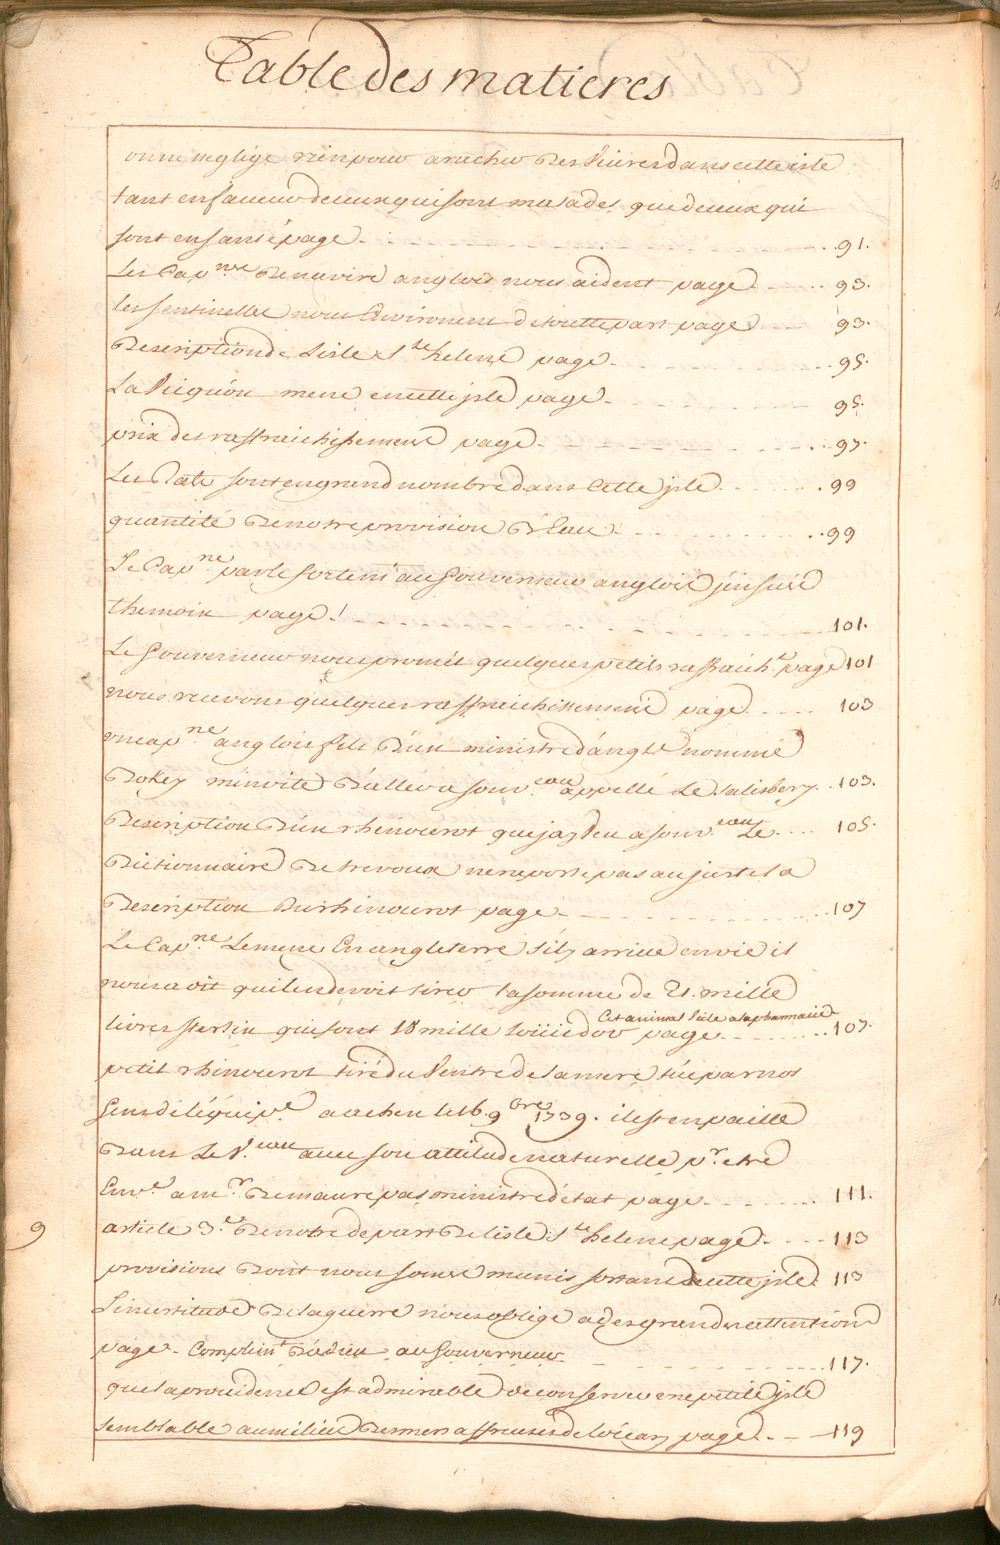 Table des matieres
on ne neglige rien pour aracher des vivres dans cette isle
tant en faveur de ceux qui sont malades que de ceux qui
sont en santé page 91.
Les Cap.nes de navire anglois nous aident page 93.
les sentinelles nous environnent de toutte part page 93.
Description de Lisle Ste helene page 95.
La vie quon mene en cette isle page 95.
prix des raffraichissemens page 97.
Les Rats sont en grand nombre dans cette isle 99
quantité de notre provision d'Eau 99
Le Cap.ne parle fortem.t au gouverneur anglois j'en suis
themoin page ! 101.
Le gouverneur nous promet quelques petits raffraich.ts page 101
nous recevons quelques raffraichissemens page 103
un cap.ne anglois fils d'un ministre d'angle nommé
m'invite d'aller a son v.eau appellé Le Salisbery 103.
Description d'un rhinocerot que jay veu a son v.eau Le 105.
Dictionnaire de trevoux ne raporte pas au juste la
Description du rhinocerot page 107
Le Cap.ne Le mene en angleterre s'il y arrive en vie il
nous a dit quil en devoit tirer la somme de 21. mille
livres sterlin qui font 18 mille louis dor page cet animal utile a la pharmacie 107.
petit rhinocerot tiré du ventre de sa mere tué par nos
gens de léquip.e a achen le 16 9bre 1739. il est en paille
Dans Le V.eau avec son attitude naturelle p.r etre
Env.é a m.r de maurepas ministre d'état page 111.
9
article 3.e de notre depart de lisle Ste helene page 113
provisions dont nous somes munis sortans de cette isle 113
Lincertitude de la guerre nous oblige a de grandes attentions
page - Complim.t d'adieu au gouverneur 117.
que la providence est admirable de conserver une petite isle
semblable au milieu des mers affreuses de locean page 119